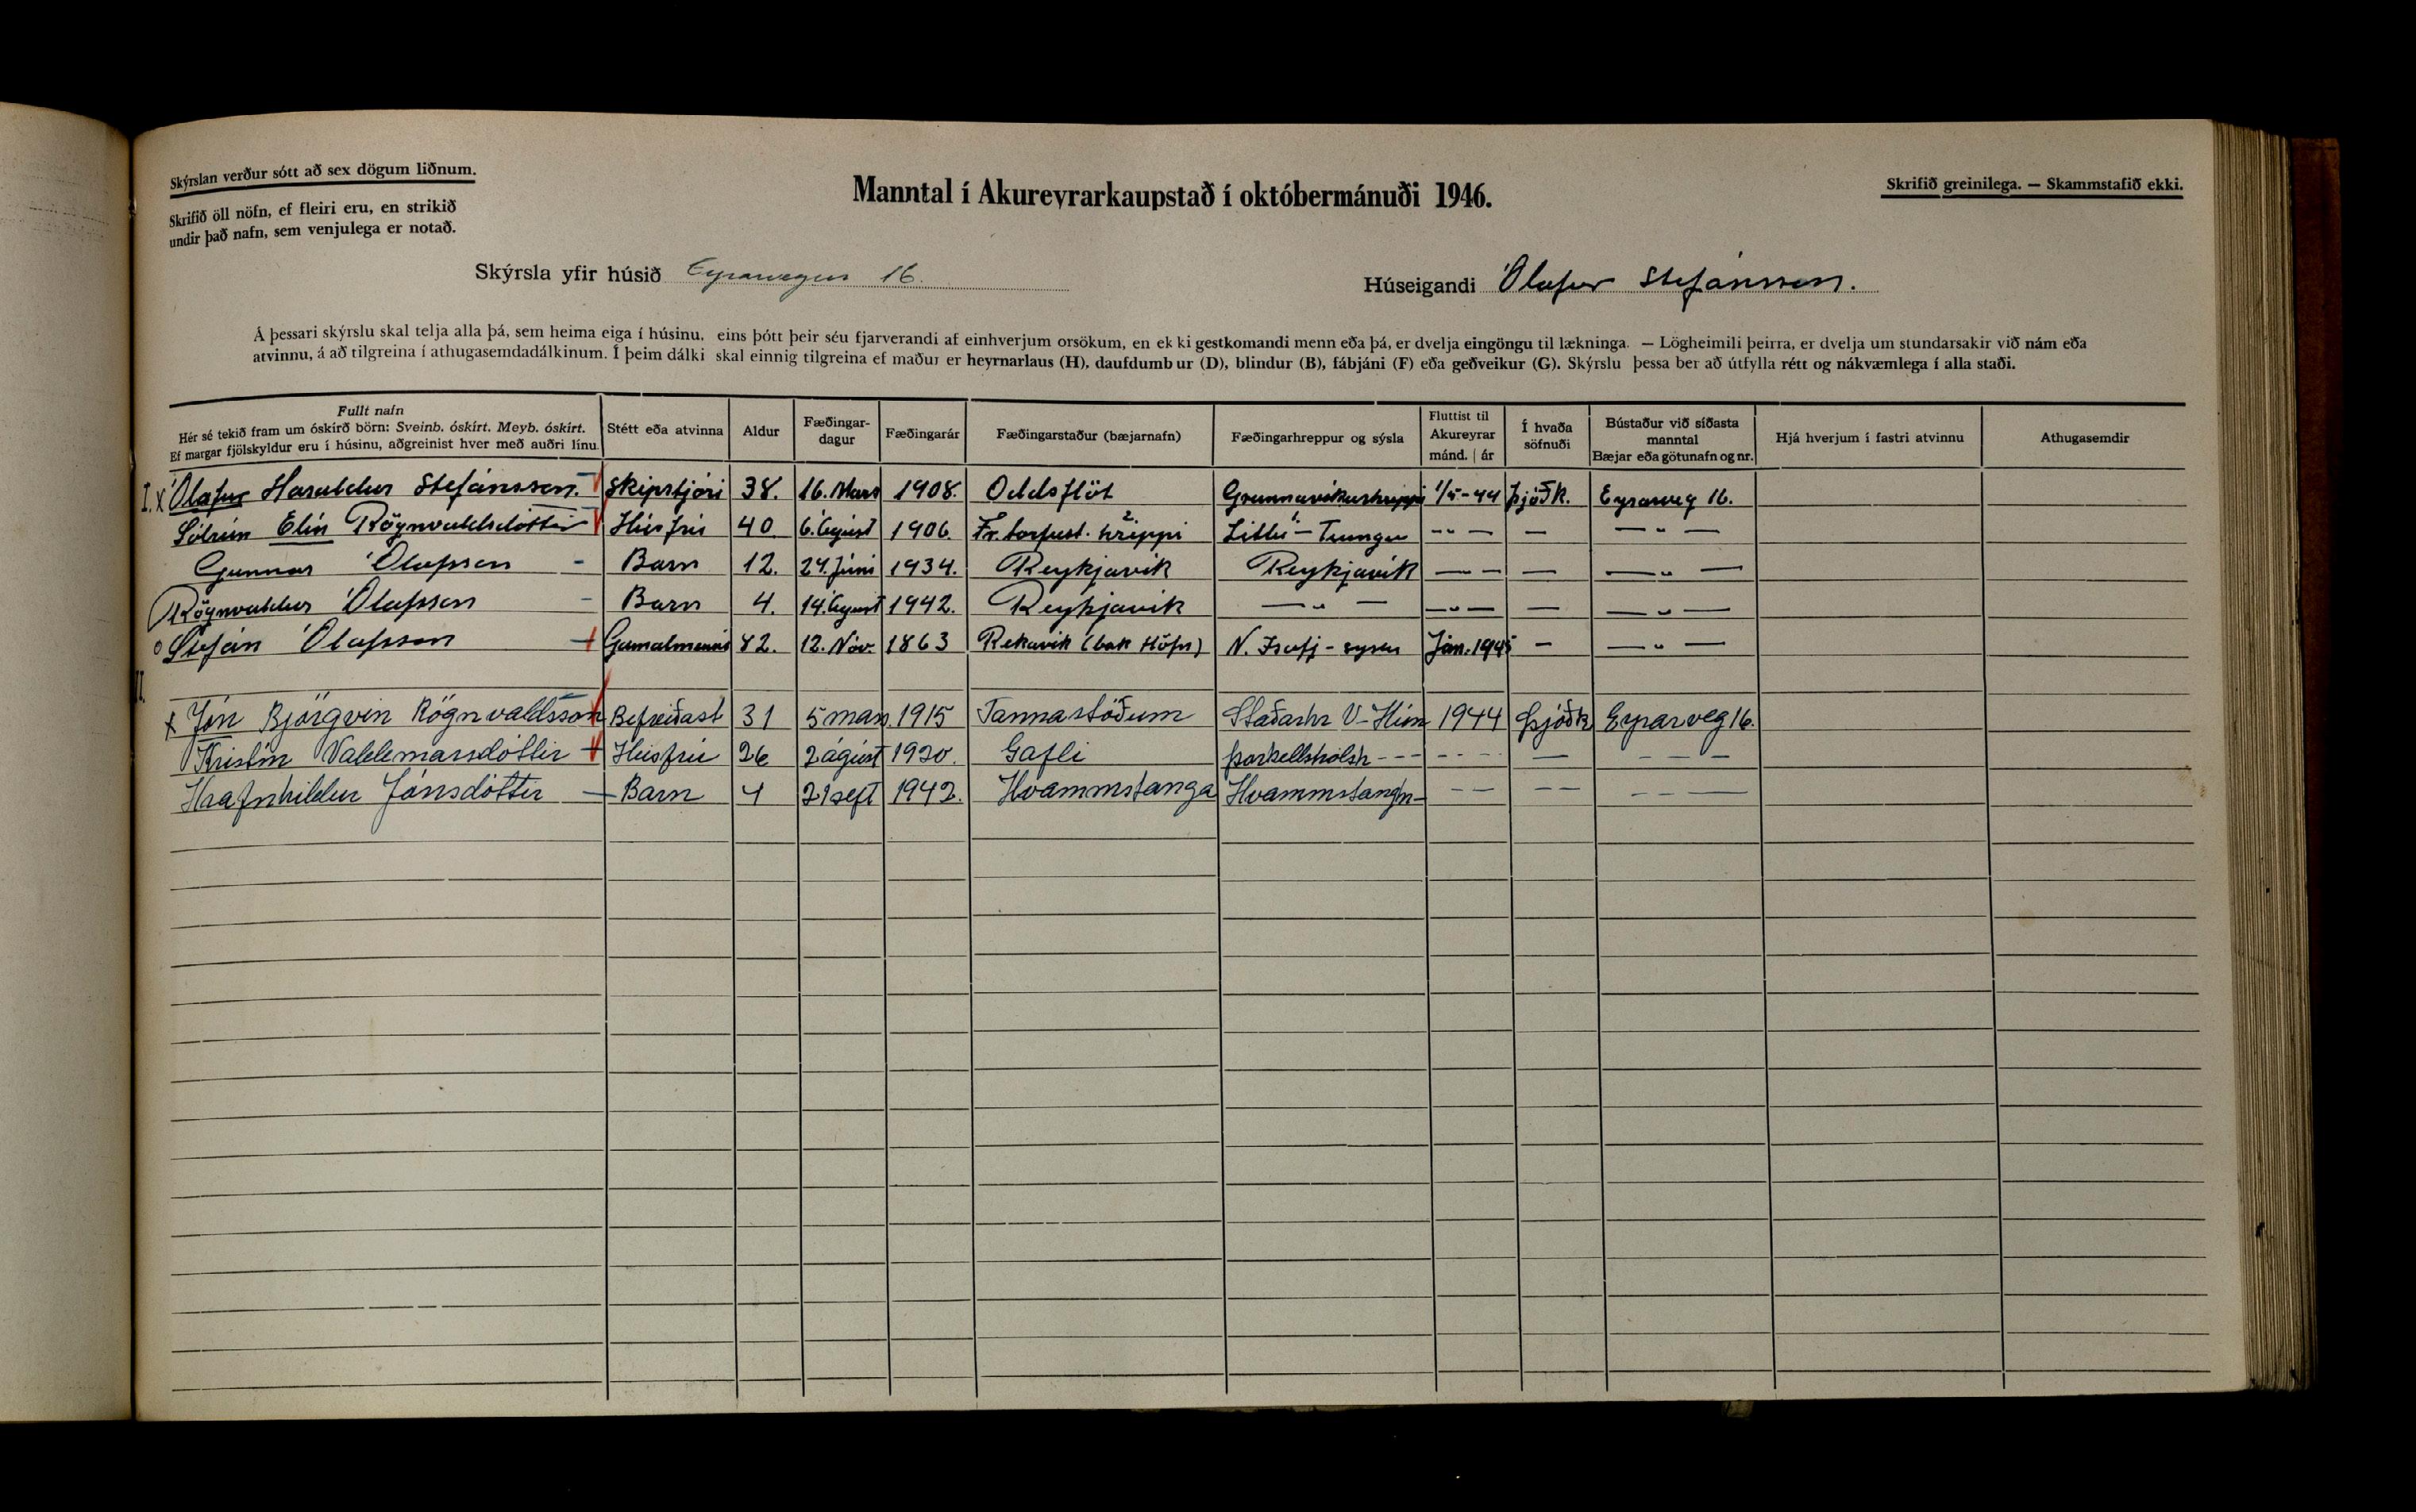 Skýrslan verður sótt að sex dögum liðnum.
Skrifið öll nöfn, ef fleiri eru, en strikið
undir það nafn, sem venjulega er notað.
Manntal í Akureyrarkaupstað í októbermánuði 1946.
Skrifið greinilega. — Skammstafið ekki.
Skýrsla yfir húsið Eyrarvegur 16.
Húseigandi Ólafur Stefánsson.
Á þessari skýrslu skal telja alla þá, sem heima eiga í húsinu, eins þótt þeir séu fjarverandi af einhverjum orsökum, en ek ki gestkomandi menn eða þá, er dvelja eingöngu til lækninga. — Lögheimili þeirra, er dvelja um stundarsakir við nám eða
atvinnu, á að tilgreina í athugasemdadálkinum. Í þeim dálki skal einnig tilgreina ef maður er heyrnarlaus (H), daufdumb ur (D), blindur (B), fábjáni (F) eða geðveikur (G). Skýrslu þessa ber að útfylla rétt og nákvæmlega í alla staði.
Fullt nafn
Hér sé tekið fram um óskírð börn: Sveinb. óskírt. Meyb. óskírt.
Ef margar fjölskyldur eru í húsinu, aðgreinist hver með auðri línu.
Stétt eða atvinna
Aldur
Fæðingar-
dagur
Fæðingarár
Fæðingarstaður (bæjarnafn)
Fæðingarhreppur og sýsla
Fluttist til
Akureyrar
mánd. | ár
Í hvaða
söfnuði
Bústaður við síðasta
manntal
Bæjar eða götunafn og nr.
Hjá hverjum í fastri atvinnu
Athugasemdir
I. x Ólafur Haraldur Stefánsson. Skipstjóri 38. 16. Mars 1908. Oddsflöt Grunnavíkurhreppi 1/5-44 Þjóðk. Eyrarveg 16.
Sólrún Elín Rögnvaldsdóttir Húsfrú 40 6. Ágúst 1906 Fr. torfust. hreppi Litlu-Tungu -"- — — " —
Gunnar Ólafsson - Barn 12. 24. Júní 1934. Reykjavík Reykjavík — " — — — " —
Rögnvaldur Ólafsson - Barn 4. 14. Ágúst 1942. Reykjavík — " — — " — — — " —
o Stefán Ólafsson Gamalmenni 82. 12. Nóv. 1863 Rekavík (bak Höfn) N. Ísafj-sýslu Jan. 1945 — — " —
II.
x Jón Björgvin Rögnvaldsson Bifreiðast 31 5 mars 1915 Tannastöðum Staðarhr V-Hún 1944 Þjóðk Eyrarveg 16.
Kristín Valdemarsdóttir Húsfrú 26 2 ágúst 1920. Gafli Þorkellshólsh - - - - - - — — — —
Hrafnhildur Jónsdóttir — Barn 4 21 sept 1942. Hvammstanga Hvammstangh- - - - - - - —